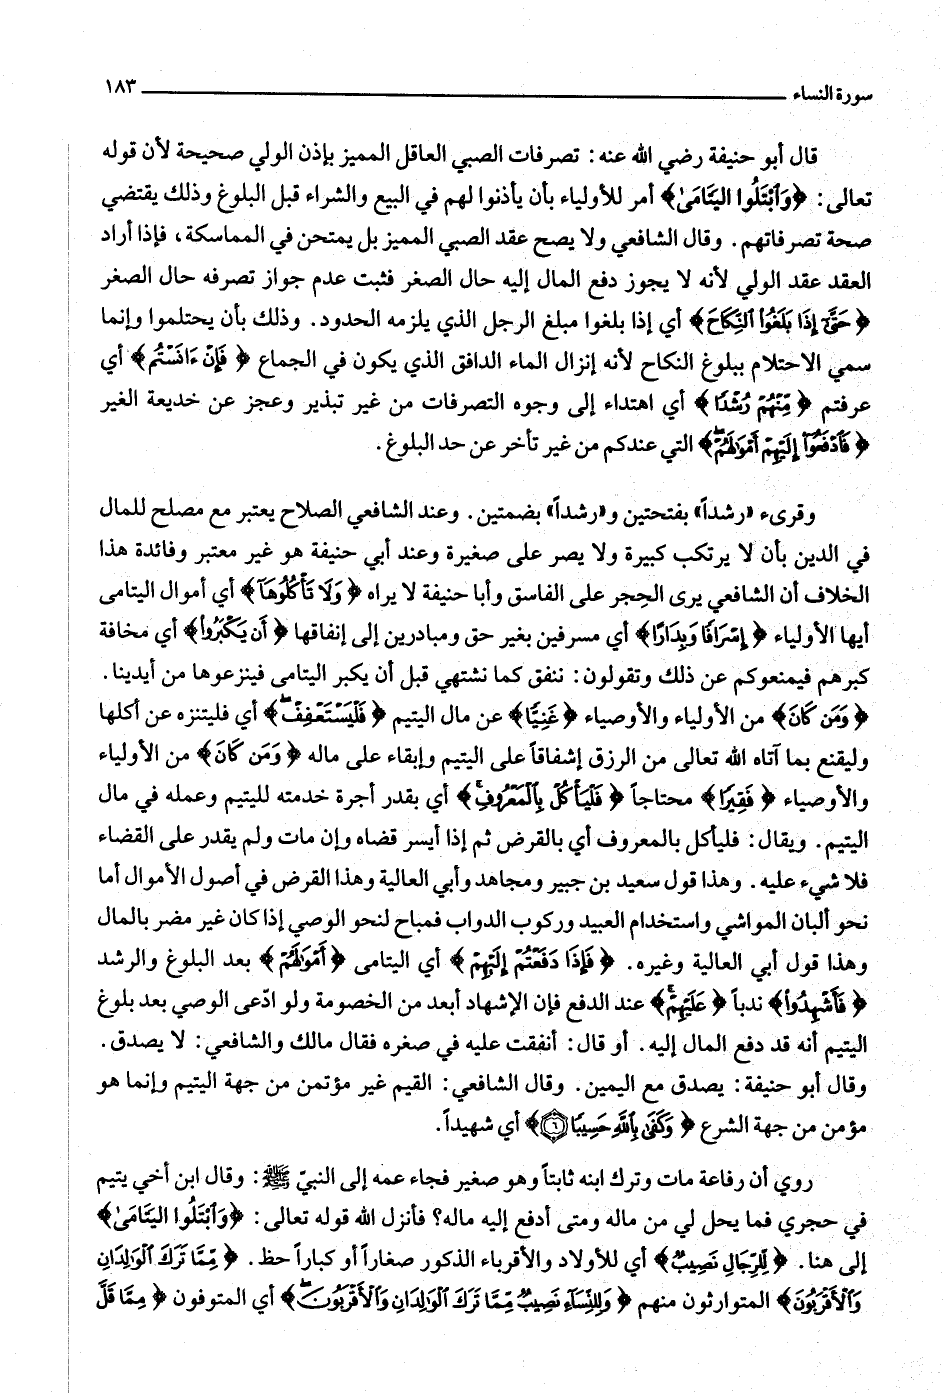 سورة النساء ١٨٣
قال أبو حنيفة رضي الله عنه: تصرفات الصبي العاقل المميز بإذن الولي صحيحة لأن قوله
تعالى: ﴿وَٱبْتَلُوا اليَتَامَىٰ﴾ أمر للأولياء بأن يأذنوا لهم في البيع والشراء قبل البلوغ وذلك يقتضي
صحة تصرفاتهم. وقال الشافعي ولا يصح عقد الصبي المميز بل يمتحن في المماسكة، فإذا أراد
العقد عقد الولي لأنه لا يجوز دفع المال إليه حال الصغر فثبت عدم جواز تصرفه حال الصغر
﴿حَتَّىٰٓ إِذَا بَلَغُوا۟ ٱلنِّكَاحَ﴾ أي إذا بلغوا مبلغ الرجل الذي يلزمه الحدود. وذلك بأن يحتلموا وإنما
سمي الاحتلام ببلوغ النكاح لأنه إنزال الماء الدافق الذي يكون في الجماع ﴿فَإِنْ ءَانَسْتُم﴾ أي
عرفتم ﴿مِّنْهُمْ رُشْدًا﴾ أي اهتداء إلى وجوه التصرفات من غير تبذير وعجز عن خديعة الغير
﴿فَٱدْفَعُوٓا۟ إِلَيْهِمْ أَمْوَٰلَهُمْۖ﴾ التي عندكم من غير تأخر عن حد البلوغ.
وقرىء «رشداً» بفتحتين و«رشداً» بضمتين. وعند الشافعي الصلاح يعتبر مع مصلح للمال
في الدين بأن لا يرتكب كبيرة ولا يصر على صغيرة وعند أبي حنيفة هو غير معتبر وفائدة هذا
الخلاف أن الشافعي يرى الحِجر على الفاسق وأبا حنيفة لا يراه ﴿وَلَا تَأْكُلُوهَآ﴾ أي أموال اليتامى
أيها الأولياء ﴿إِسْرَافًا وَبِدَارًا﴾ أي مسرفين بغير حق ومبادرين إلى إنفاقها ﴿أَن يَكْبَرُوا۟﴾ أي مخافة
كبرهم فيمنعوكم عن ذلك وتقولون: ننفق كما نشتهي قبل أن يكبر اليتامى فينزعوها من أيدينا.
﴿وَمَن كَانَ﴾ من الأولياء والأوصياء ﴿غَنِيًّا﴾ عن مال اليتيم ﴿فَلْيَسْتَعْفِفْۖ﴾ أي فليتنزه عن أكلها
وليقنع بما آتاه الله تعالى من الرزق إشفاقاً على اليتيم وإبقاء على ماله ﴿وَمَن كَانَ﴾ من الأولياء
والأوصياء ﴿فَقِيرًا﴾ محتاجاً ﴿فَلْيَأْكُلْ بِٱلْمَعْرُوفِۚ﴾ أي بقدر أجرة خدمته لليتيم وعمله في مال
اليتيم. ويقال: فليأكل بالمعروف أي بالقرض ثم إذا أيسر قضاه وإن مات ولم يقدر على القضاء
فلا شيء عليه. وهذا قول سعيد بن جبير ومجاهد وأبي العالية وهذا القرض في أصول الأموال أما
نحو ألبان المواشي واستخدام العبيد وركوب الدواب فمباح لنحو الوصي إذا كان غير مضر بالمال
وهذا قول أبي العالية وغيره. ﴿فَإِذَا دَفَعْتُمْ إِلَيْهِمْ﴾ أي اليتامى ﴿أَمْوَٰلَهُمْ﴾ بعد البلوغ والرشد
﴿فَأَشْهِدُوا۟﴾ ندباً ﴿عَلَيْهِمْۚ﴾ عند الدفع فإن الإشهاد أبعد من الخصومة ولو ادّعى الوصي بعد بلوغ
اليتيم أنه قد دفع المال إليه. أو قال: أنفقت عليه في صغره فقال مالك والشافعي: لا يصدق.
وقال أبو حنيفة: يصدق مع اليمين. وقال الشافعي: القيم غير مؤتمن من جهة اليتيم وإنما هو
مؤمن من جهة الشرع ﴿وَكَفَىٰ بِٱللَّهِ حَسِيبًا ٦﴾ أي شهيداً.
روي أن رفاعة مات وترك ابنه ثابتاً وهو صغير فجاء عمه إلى النبيّ ﷺ: وقال ابن أخي يتيم
في حجري فما يحل لي من ماله ومتى أدفع إليه ماله؟ فأنزل الله قوله تعالى: ﴿وَٱبْتَلُوا اليَتَامَىٰ﴾
إلى هنا. ﴿لِّلرِّجَالِ نَصِيبٌ﴾ أي للأولاد والأقرباء الذكور صغاراً أو كباراً حظ. ﴿مِّمَّا تَرَكَ ٱلْوَٰلِدَانِ
وَٱلْأَقْرَبُونَ﴾ المتوارثون منهم ﴿وَلِلنِّسَآءِ نَصِيبٌ مِّمَّا تَرَكَ ٱلْوَٰلِدَانِ وَٱلْأَقْرَبُونَۖ﴾ أي المتوفون ﴿مِمَّا قَلَّ